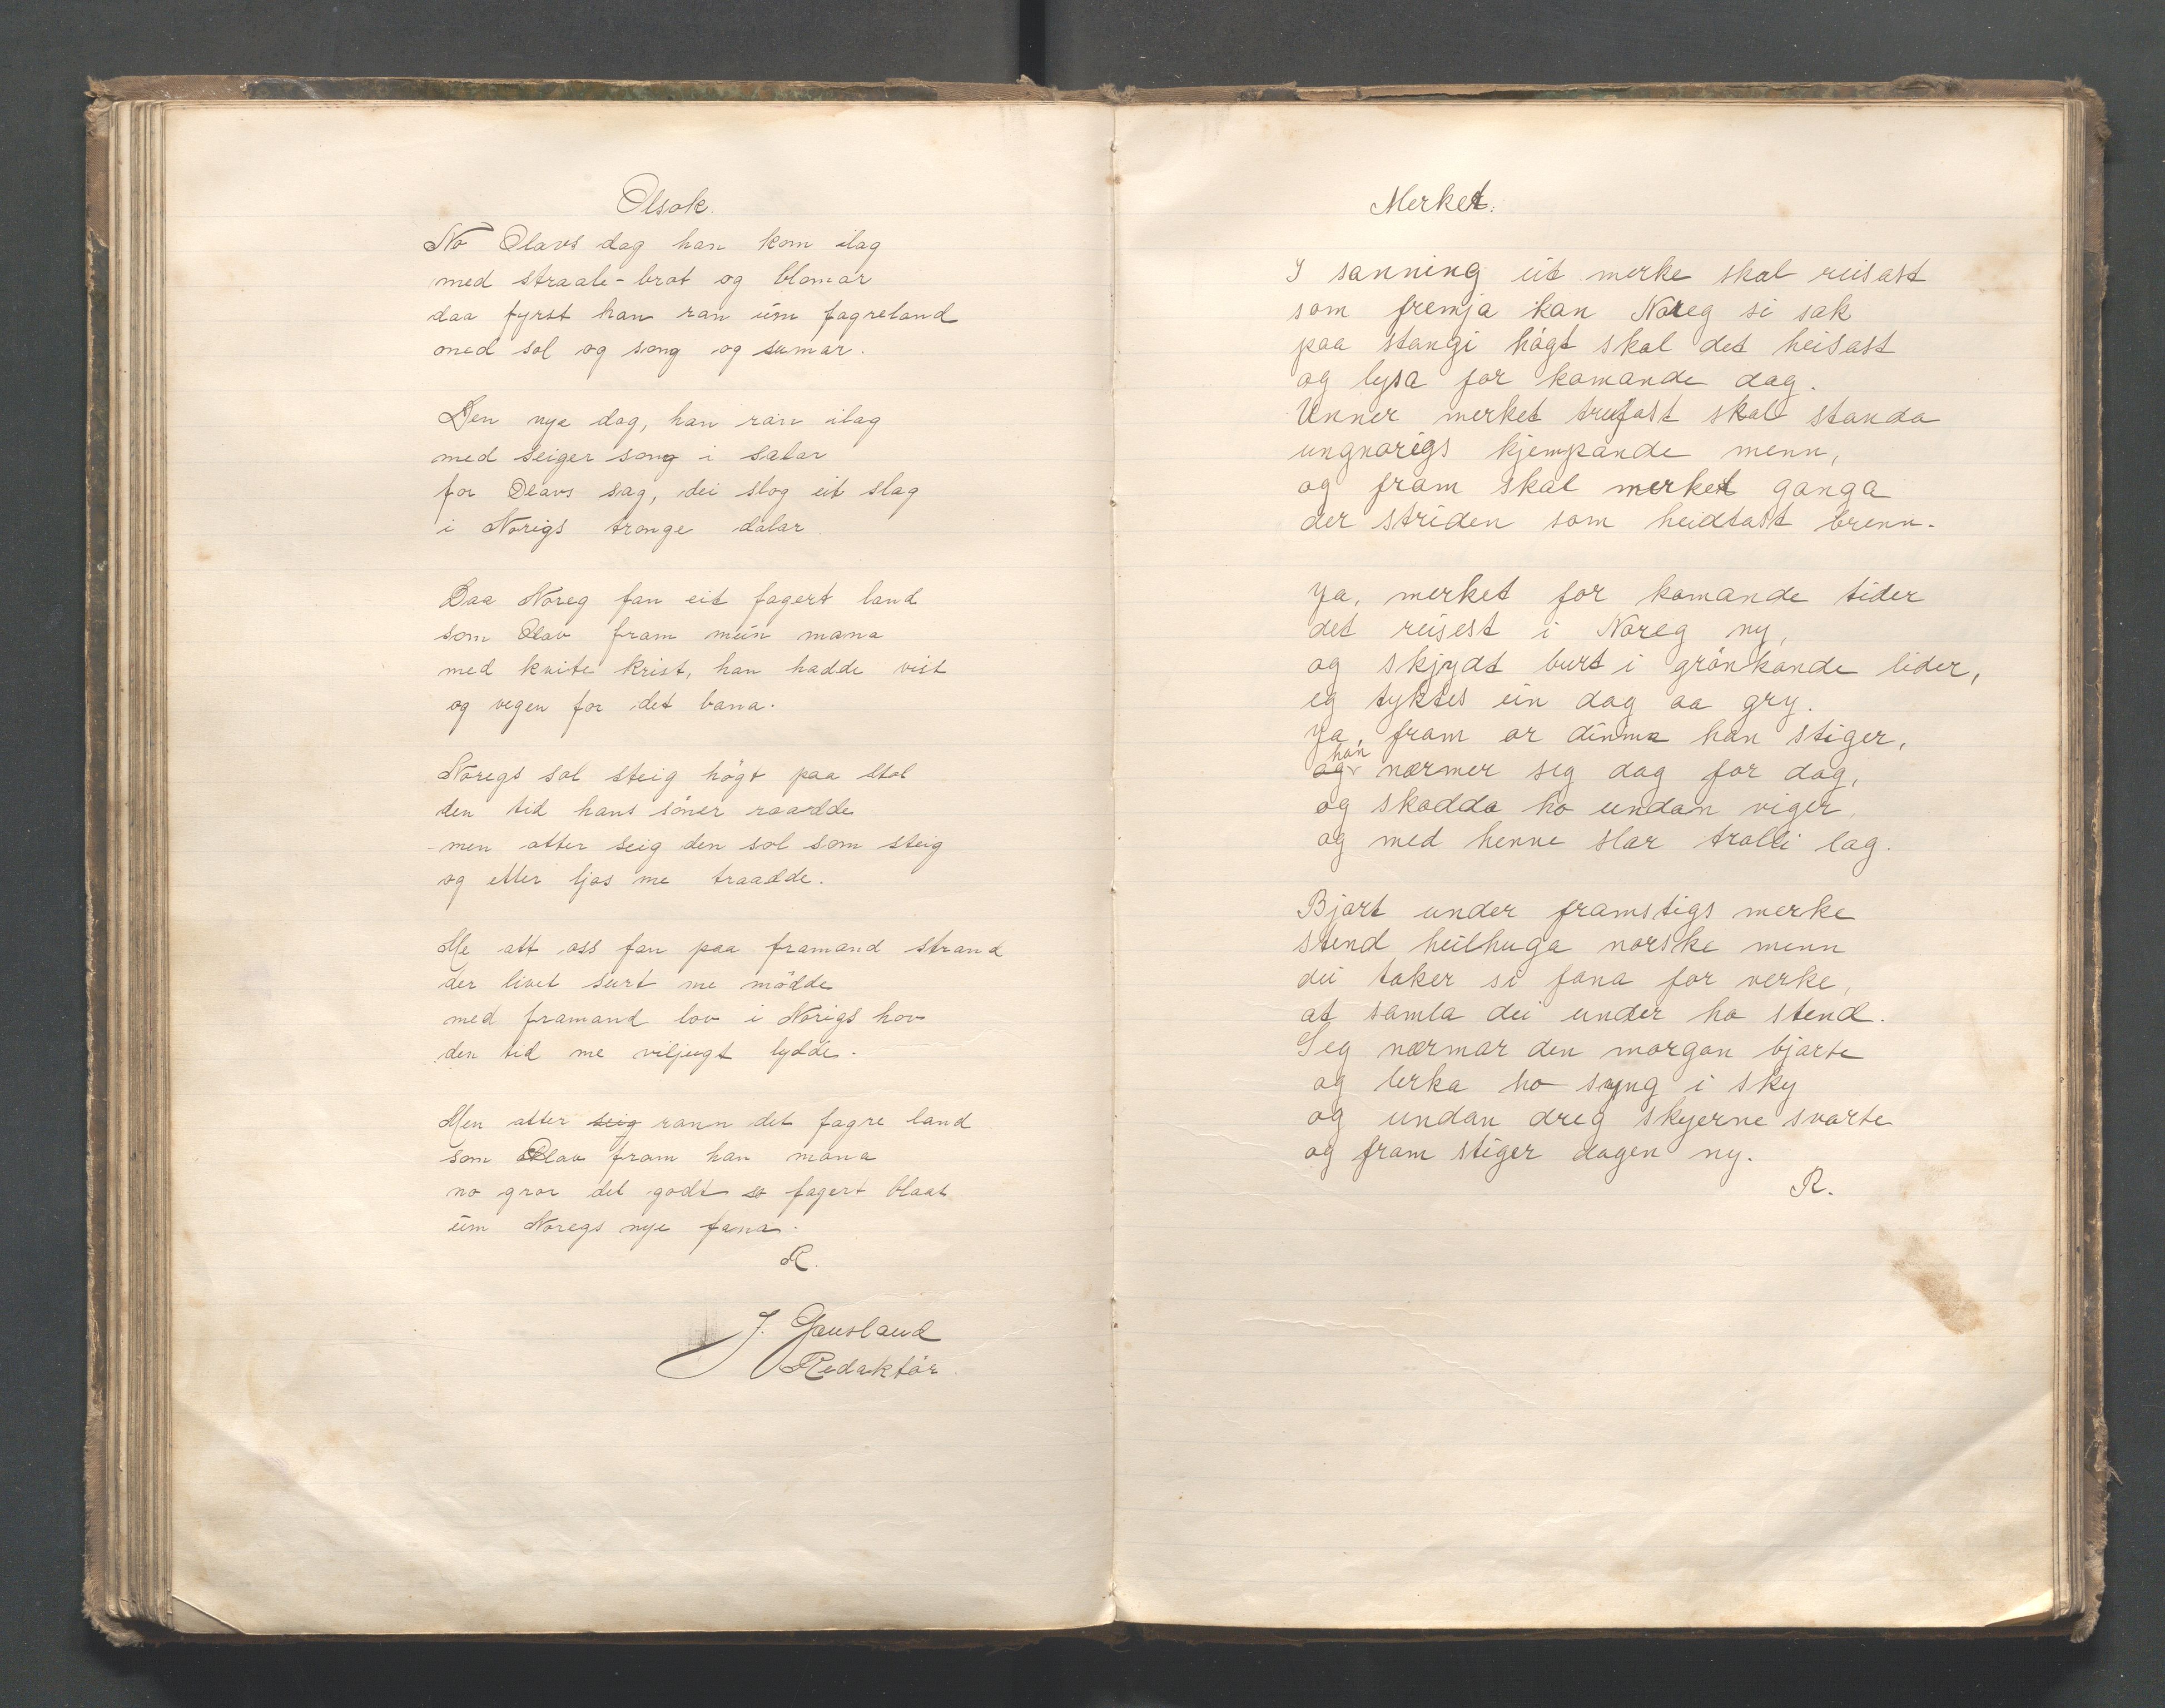 Olsok.
No Olavs dag han kom ilag
med straale-brot og blomar
daa fyrst han ran um fagreland
med sol og song og sumar.
Den nye dag, han ran ilag
med seiger song i salar
for Olavs sag, dei slog eit slag
i Norigs tronge dalar.
Daa Noreg fan eit fagert land
som Olav fram mun mana
med kvite krist, han hadde vist
og vegen for det bana.
Noregs sol steig högt paa stol
den tid hans söner raadde
men atter seig den sol som steig
og etter ljos me traadde.
Me att oss fan paa framand strand
der livet surt me mödde
med framand lov i Norigs hov
den tid me viljugt lydde.
Men atter seig rann det fagre land
som Olav fram han mana
no gror det godt so fagert blaat
um Noregs nye fana.
R.
J. Gausland
Redaktör.
Merket.
I sanning eit merke skal reisast
som fremja kan Noreg si sak
paa stangi högt skal det heisast
og lysa for komande dag.
Unner merket trufast skal standa
ungnorigs kjempande menn,
og fram skal merket ganga
der striden som heidtast brenn.
Ja, merket for komande tider
det reisest i Noreg ny,
og skjydt burt i grönkande lider,
eg tyktes ein dag aa gry.
Ja, fram or dimma han stiger,
han
og nærmer seg dag for dag,
og skodda ho undan viger,
og med henne slar trolli lag.
Bjart under framstigs merke
stend heilhuga norske menn
dei taker si fana for verke,
at samla dei under ho stend.
Seg nærmar den morgon bjarte
og lerka ho syng i sky
og undan dreg skyerne svarte
og fram stiger dagen ny.
R.